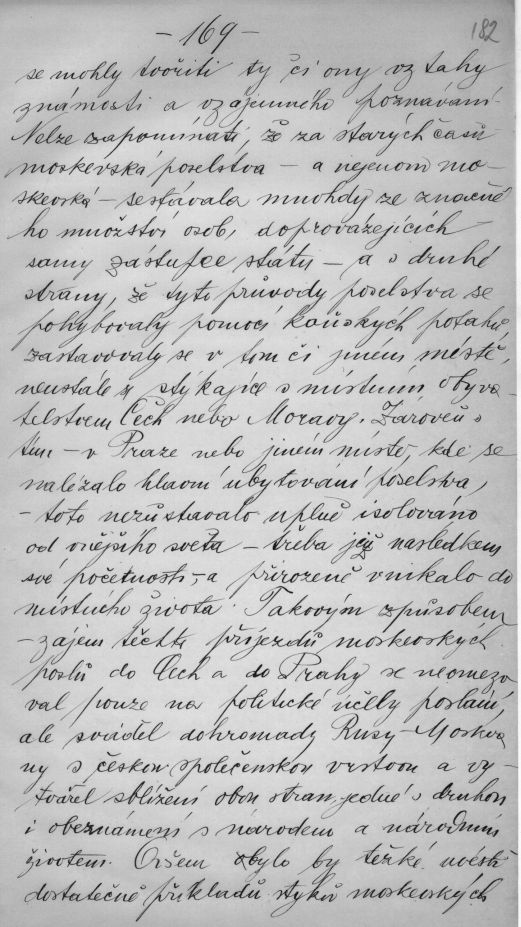 - 169 -
182
se mohly tvořiti ty či ony vztahy
známosti a vzájemného poznávání.
Nelze zapomínati, že za starých časů
moskevská poselstva – a nejenom mo-
skevská – sestávala mnohdy ze značné
ho množství osob, doprovázejících
samy zástupce státu – a s druhé
strany, že tyto průvody poselstva se
pohybovaly pomocí koňských potahů,
zastavovaly se v tom či jiném místě,
neustále stýkajíce s místním obyva-
telstvem Čech nebo Moravy. Zároveň s
tím – v Praze nebo jiném místě, kde se
nalézalo hlavní ubytování poselstva,
– toto nezůstavalo uplně isolováno
od vnějšího světa – třeba již následkem
své početnosti – a přirozeně vnikalo do
místného života. Takovým způsobem
– zájem těchto příjezdů moskevských
poslů do Čech a do Prahy se neomezo
val pouze na politické účely poslání,
ale sváděl dohromady Rusy-Moskva
ny s českou společenskou vrstvou a vy-
tvářel sblížení obou stran jedné s druhou
i obeznámení s národem a národním
životem. Ovšem bylo by těžké uvésti
dostatečně příkladů styků moskevských